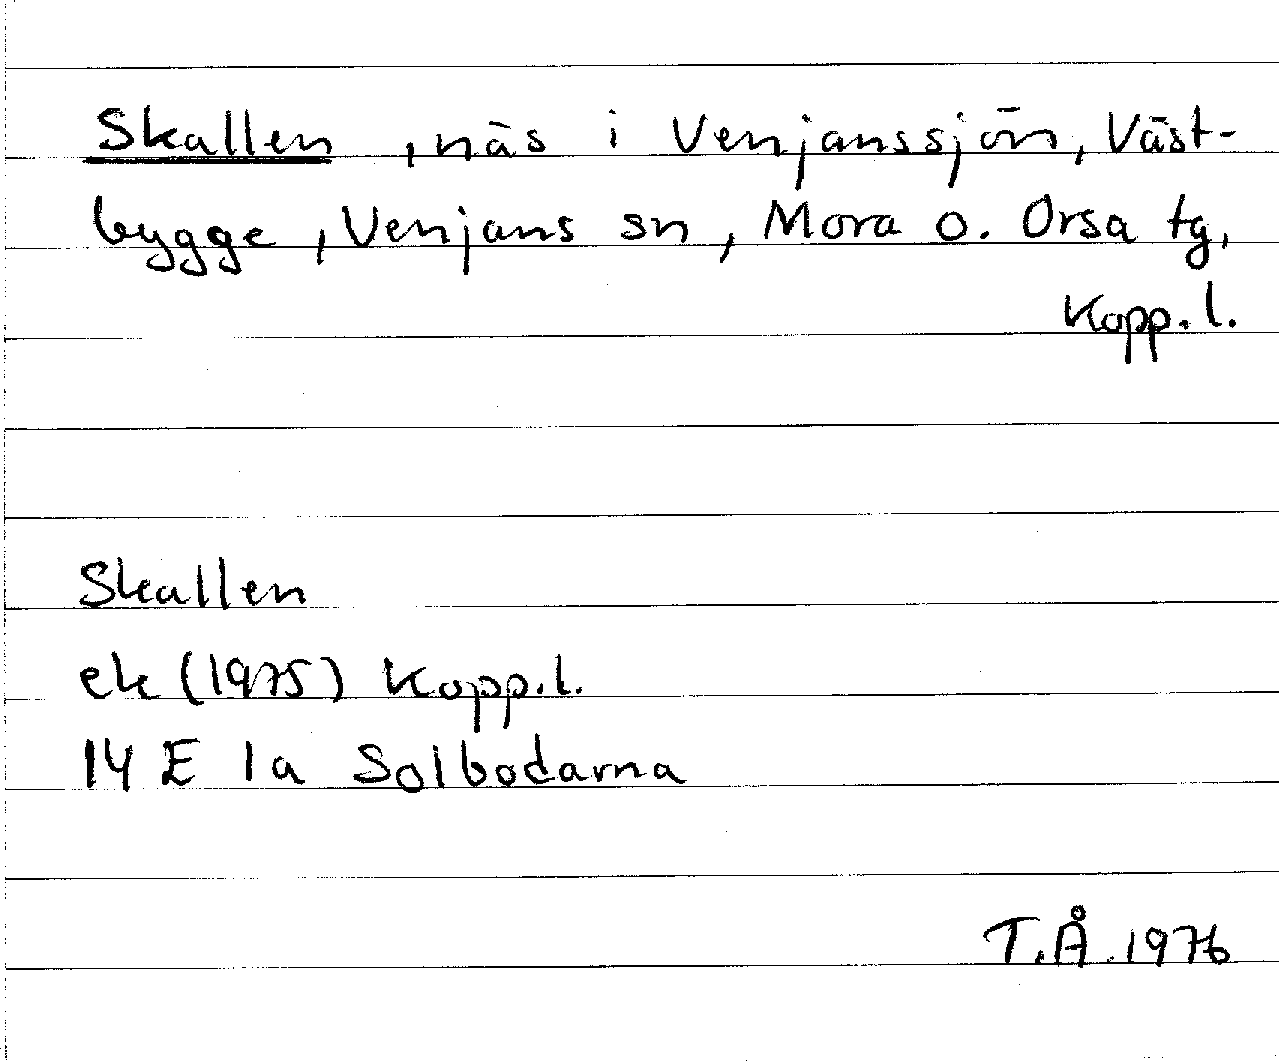 Skallen, näs i Venjanssjön, Väst-
bygge, Venjans sn, Mora o. Orsa tg,
Kopp.l.
Skallen
ek (1975) Kopp.l.
14 E 1a Solbodarna
T.Å. 1976